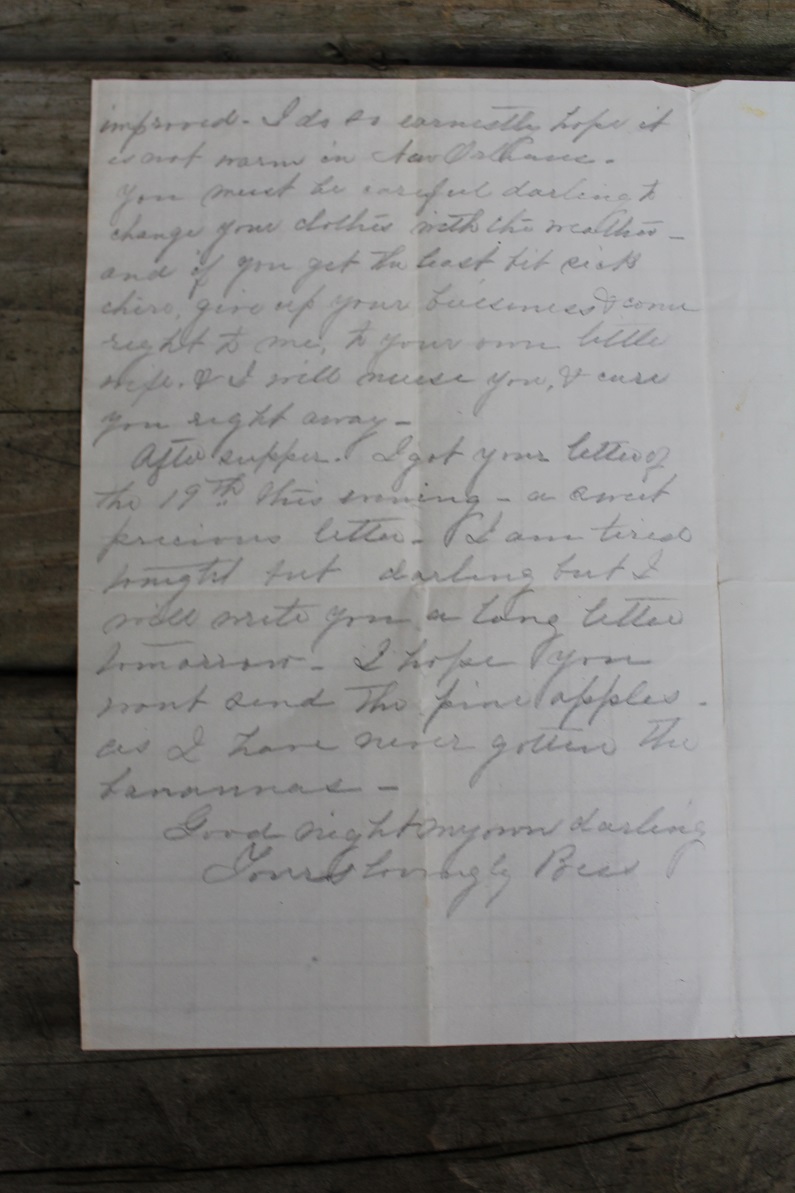 improved - I do so earnestly hope it
is not warm in New Orleans -
You must be careful darling to
change your clothes with the weather -
and if you get the least bit sick
chere, give up your buisiness & come
right to me, to your own little
wife. & I will nurse you, & cure
you right away -
After supper. I got your letter of
the 19th this evening - a sweet
precious letter - I am tired
tonight but darling but I
will write you a long letter
tomorrow - I hope you
wont send the pine apples -
as I have never gotten the
banannas -
Good night my own darling
Yours lovingly Bess